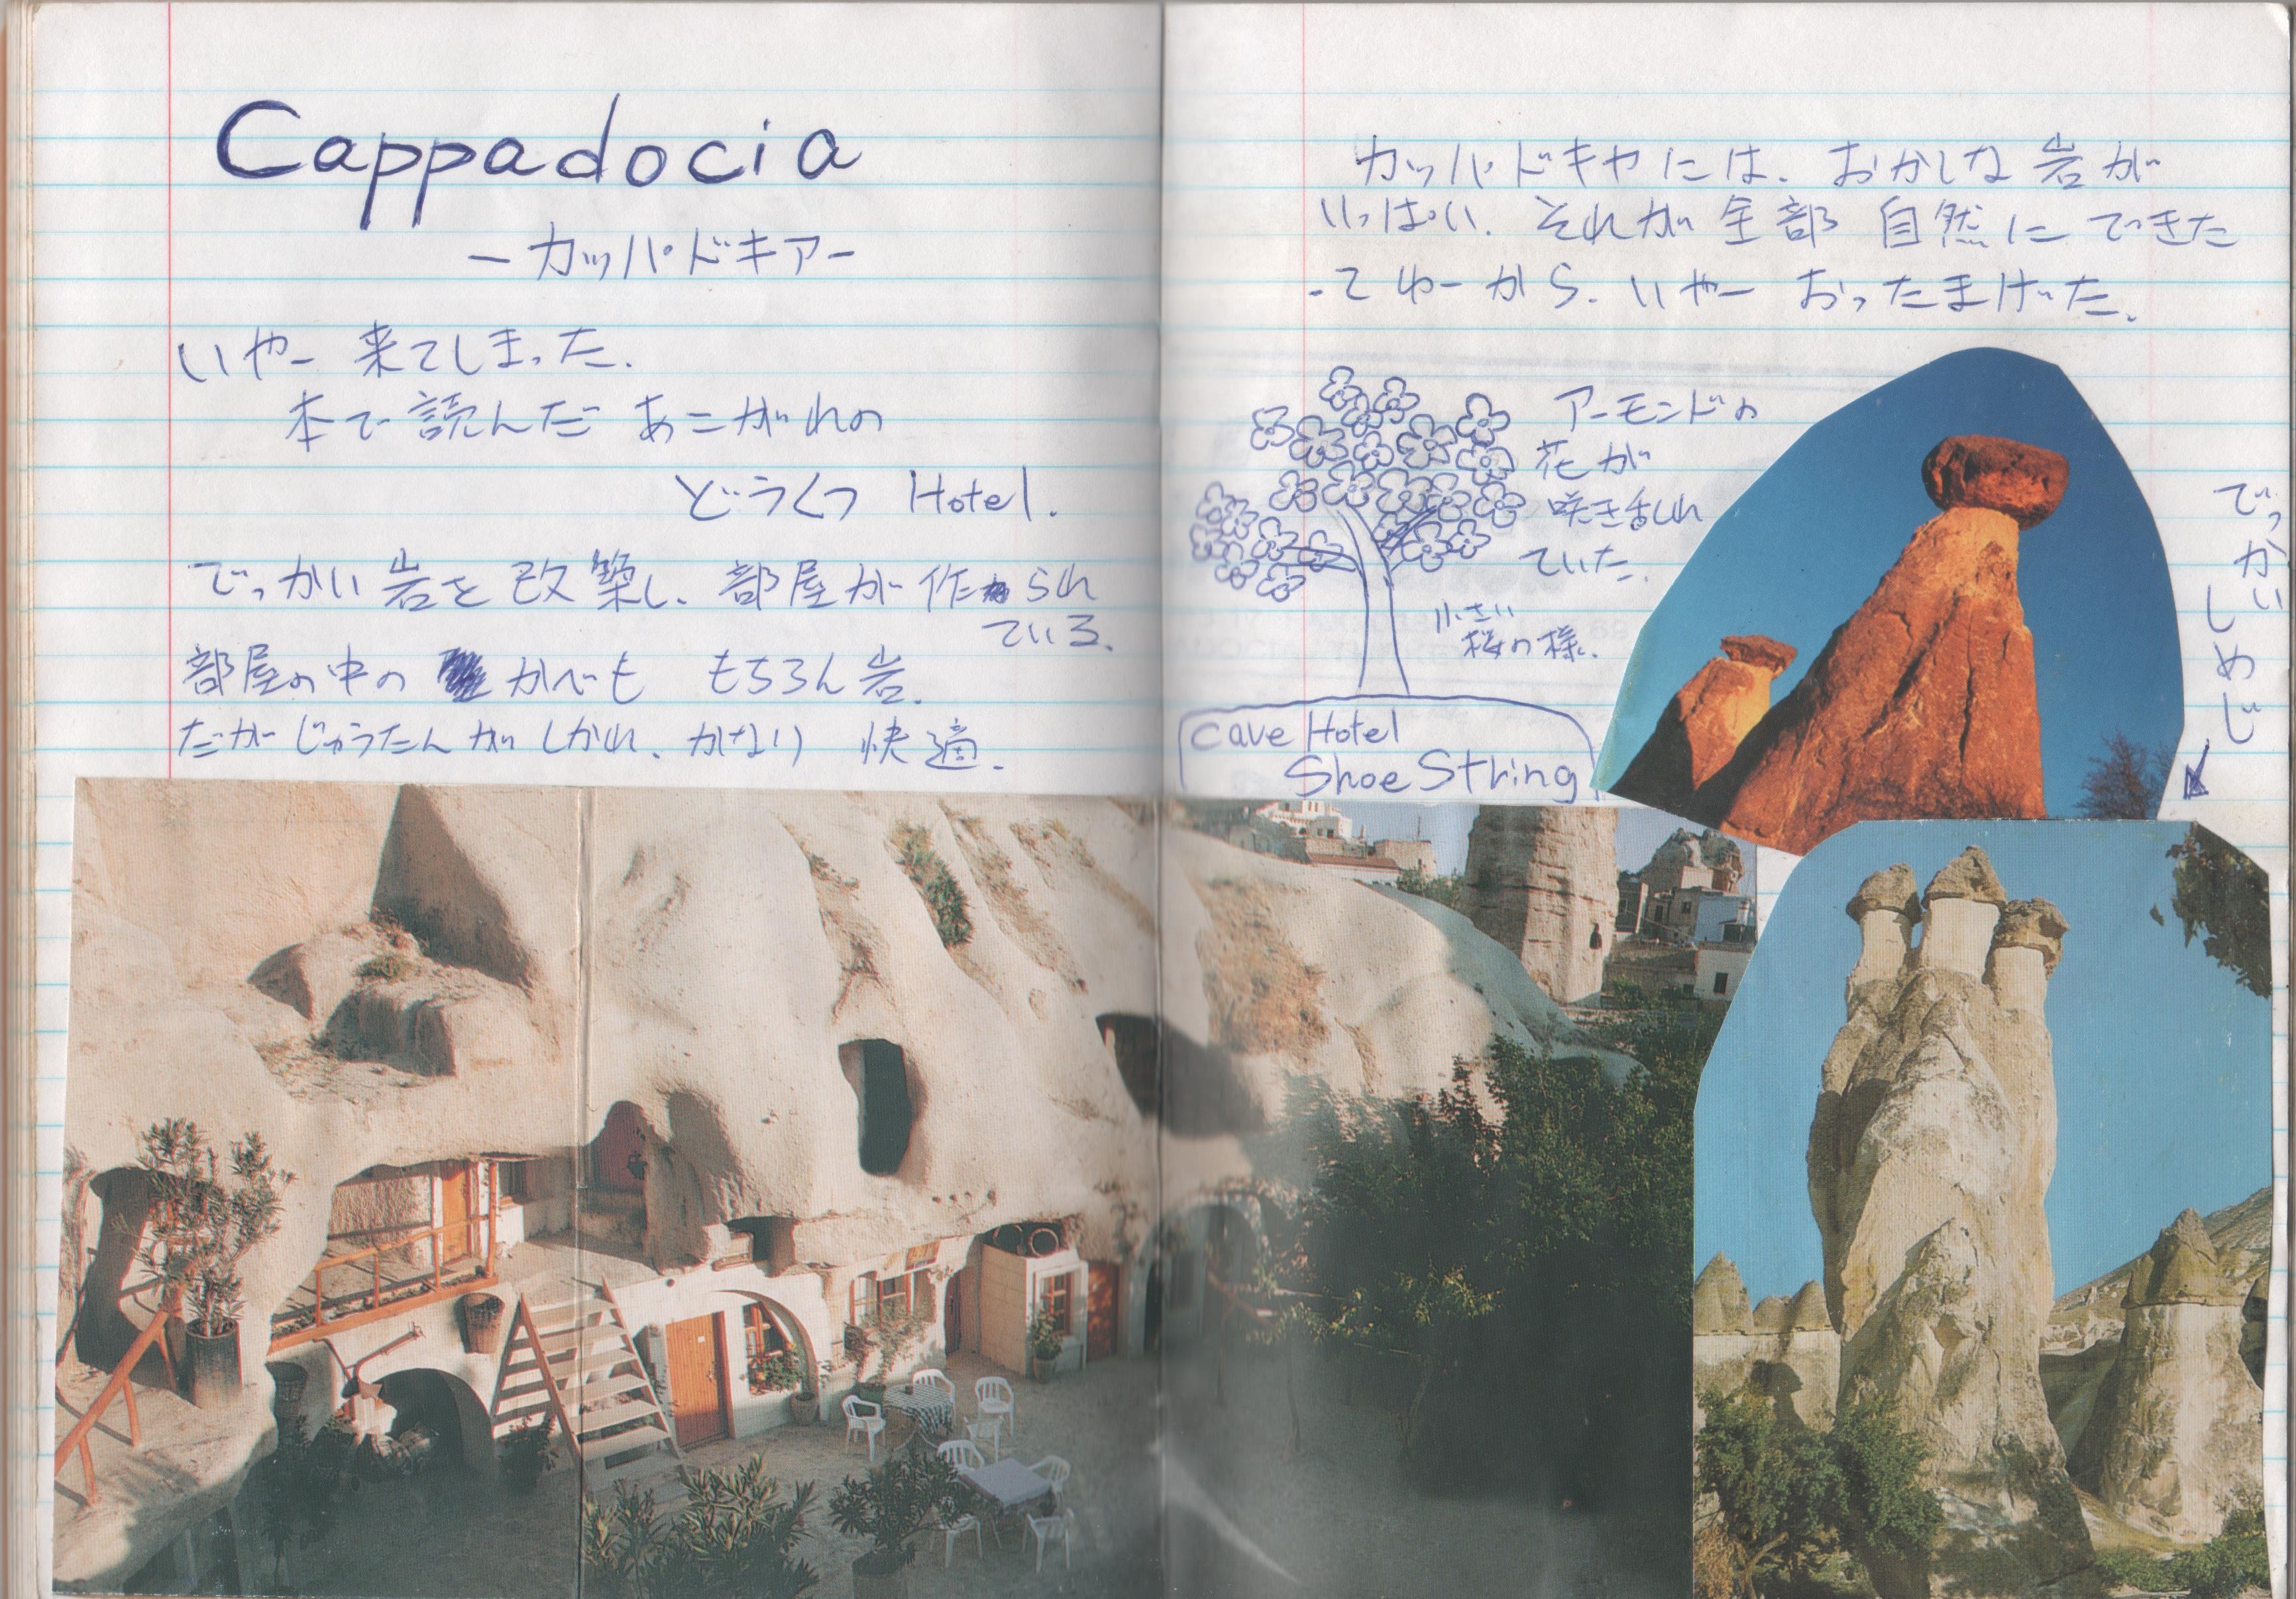 Cappadocia
ーカッパドキアー
いやー 来てしまった.
本で読んだ あこがれの
どうくつ Hotel.
でっかい岩を改築し、部屋が作られ
ている.
部屋の中の かべも もちろん岩.
だが じゅうたんがしかれ、かなり 快適.
カッパドキヤには、おかしな岩が
いっぱい. それが全部 自然にできた
-てゆーから、いやー おったまげた.
アーモンドの
花が
咲き乱れ
ていた.
小さい
桜の様.
Cave Hotel
Shoe String
でっかい
しめじ